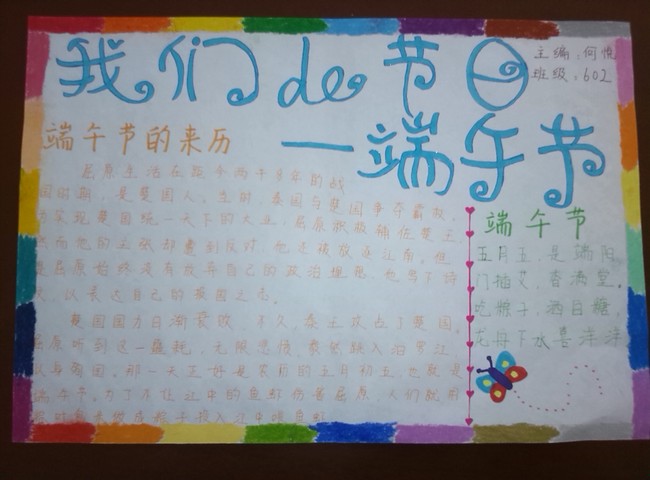 我们de节日
主编：何悦
班级：602
—端午节
端午节的来历
屈原生活在距今两千多年的战
国时期，是楚国人。当时，秦国与楚国争夺霸权，
为实现楚国统一天下的大业，屈原积极辅佐楚王，
然而他的主张却遭到反对，他还被放逐江南。但
是屈原始终没有放弃自己的政治理想，也写下诗
，以表达自己的报国之志。
楚国国力日渐衰败，不久，秦王攻占了楚国。
屈原听到这一噩耗，无限悲愤，毅然跳入汨罗江
以身殉国。那一天正好是农历的五月初五，也就是
端午节。为了不让江中的鱼虾伤害屈原，人们就用
粽子投入江中喂鱼虾
端午节
五月五，是端阳
门插艾，香满堂。
吃粽子，洒白糖，
龙舟下水喜洋洋